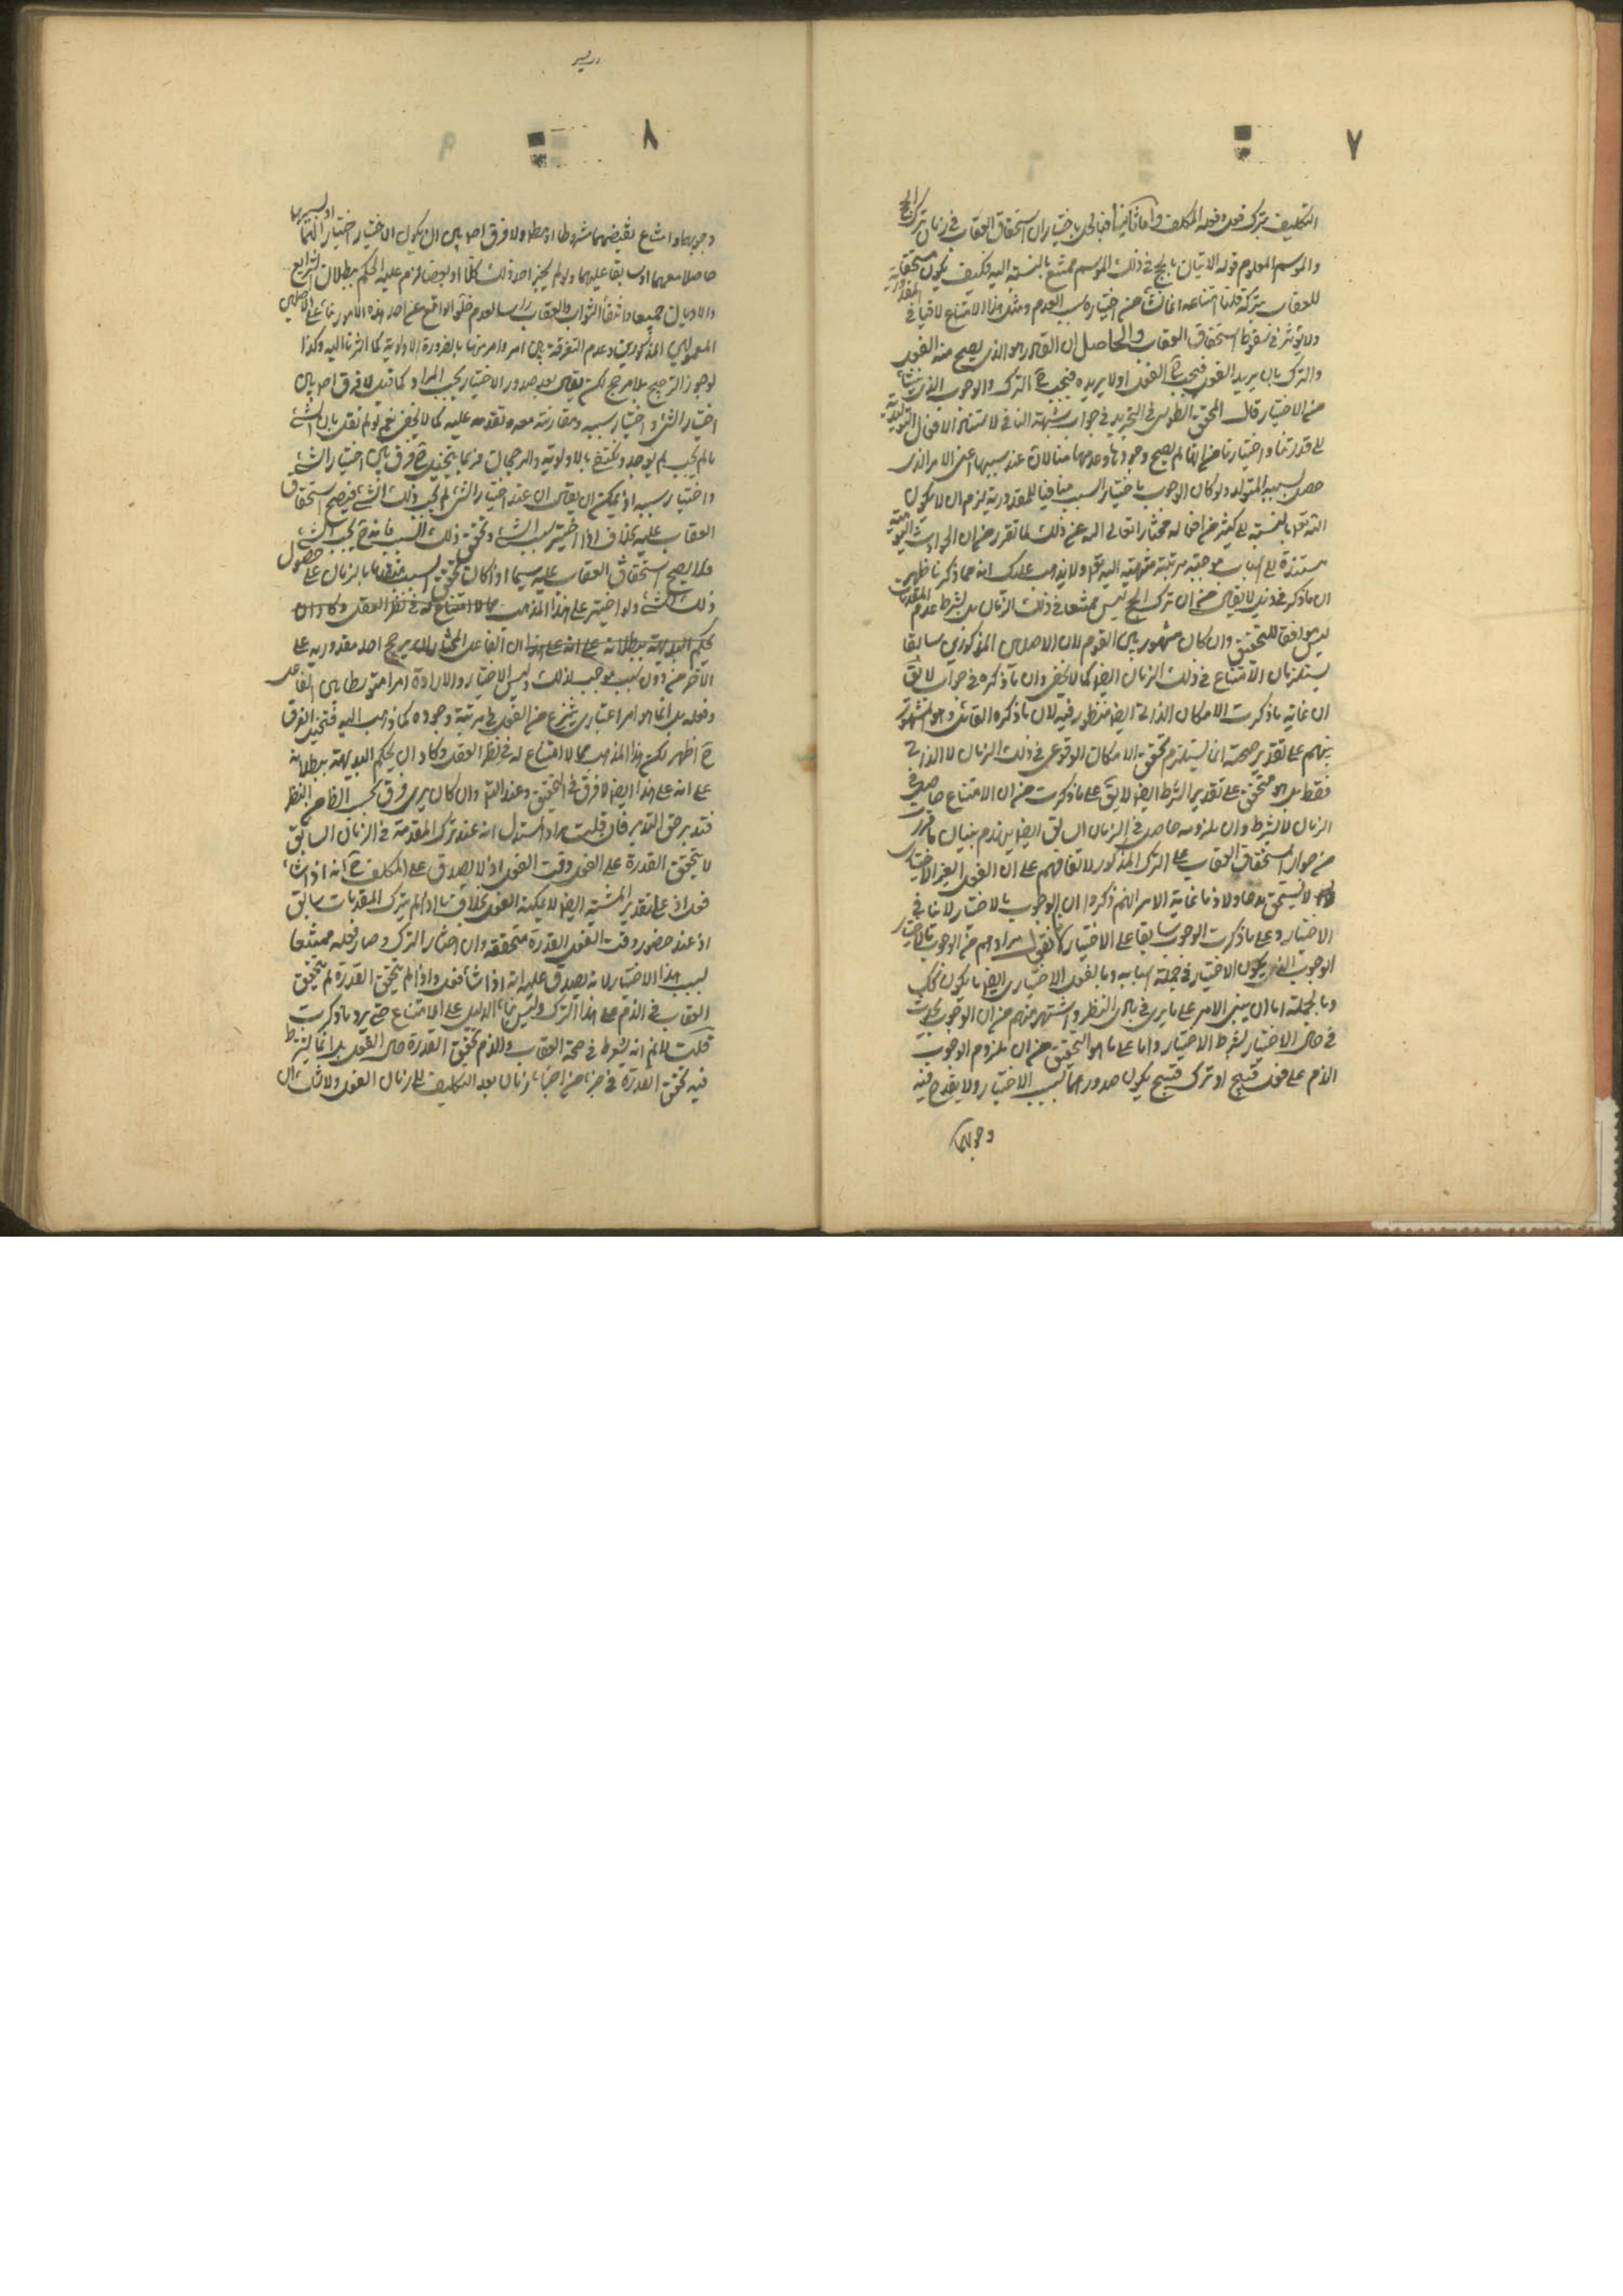 ٧
التكليف بترك فعل وفعله المكلف واما ثانيا فبالحل باختيار ان استحقاق العقاب في زمان ترك الحج
والموسم المعلوم قوله الاتيان بالحج في ذلك الموسم ممتنع بالنسبة اليه فكيف يكون مستحقا
للعقاب بتركه قلنا امتناعه انما نشأ من اختياره سبب العدم ومثل هذا الامتناع لا ينافي المقدورية
ولا يؤثر في سقوط استحقاق العقاب والحاصل ان القادر هو الذي يصح منه الفعل
والترك بان يريد الفعل فيجب ح الفعل اولا يريده فيجب ح الترك والوجوب الذي ينشأ
من الاختيار قال المحقق الطوسي في التجريد في جواب شبهة النافي لاستناد الافعال التوليدية
الى قدرتنا واختيارنا من انا لم يصح وجودها وعدمها منا لان عند سببها اعني الامر الذي
حصل بسببه المتولد ولو كان الوجوب باختيار السبب منافيا للمقدورية يلزم ان لا يكون
الله تعالى بالنسبة الى كثير من افعاله مختارا تعالى الله عن ذلك لما تقرر من ان الحوادث اليومية
مستندة الى اسباب موجبة مترتبة منتهية اليه تعالى ولا يذهب عليك انه مما ذكرنا ظهر
ان ما ذكر في ذيل لا يقال من ان ترك الحج ليس ممتنعا في ذلك الزمان بل بشرط عدم المقدمات
ليس موافقا للتحقيق وان كان مشهورا بين القوم لان الاصلين المذكورين سابقا
يستلزمان الامتناع في ذلك الزمان ايضا كما لا يخفى وان ما ذكره في جواب لا يقال
ان غاية ما ذكرت الامكان الذاتي ايضا منظور فيه لان ما ذكره القائل وهو المشهور
بينهم على تقدير صحته انما يستلزم تحقق الامكان الوقوعي في ذلك الزمان لا الذاتي
فقط بل هو متحقق على تقدير الشرط ايضا لا يق على ما ذكرت من ان الامتناع حاصل في
الزمان لا بشرط وان ملزومه حاصل في الزمان السابق ايضا يلزم بنيان ما قررت
من جواز استحقاق العقاب على الترك المذكور لاتفاقهم على ان الفعل الغير الاختياري
لا يستحق مدحا ولا ذما غاية الامر انهم ذكروا ان الوجوب بالاختيار لا ينافي
الاختيار وعلى ما ذكرت الوجوب سابقا على الاختيار لانا نقول مرادهم من الوجوب بالاختيار
الوجوب الذي يكون الاختيار في جملة اسبابه وبالفعل الاختياري ايضا ما يكون كذلك
وبالجملة اما ان يبنى الامر على ما يرى في بادي النظر واشتهر منهم من ان الوجوب يحدث
في حال الاختيار بشرط الاختيار واما على ما هو التحقيق من ان ملزوم الوجوب
الذم على فعل قبيح او ترك قبيح يكون صدورهما بسبب الاختيار ولا يقدح فيه
وجوبهما
٨
وجوبهما وامتناع نقيضهما مشروطا او مطلقا ولا فرق اصلا بين ان يكون الاختيار اختيارا لهما او لسببهما
حاصلا معهما او سابقا عليهما ولو لم يجز احد ذلك كلها او بعضا لزم عليه الحكم ببطلان الشرايع
والاديان جميعا وانتفاء الثواب والعقاب راسا لعدم خلو الواقع عن احد هذه الامور بناء على الاصلين
المعمولين المذكورين وعدم التفرقة بين امر وامر منها بالضرورة الاولوية كما اشرنا اليه وكذا
لو جوز الترجيح بلا مرجح لكن يقال بعد صدور الاختيار يجب المراد كما قيل لا فرق اصلا بين
اختيار الشئ واختيار سببه ومقارنته معه وتقدمه عليه كما لا يخفى نعم لو لم نقل بان الشئ
ما لم يجب لم يوجد ونكتفي بالاولوية والرجحان فربما يتخيل ح فرق بين اختيار الشئ
واختيار سببه اذ يمكن ان يقال ان عند اختيار الشئ لم يجب ذلك الشئ فيصح استحقاق
العقاب عليه بخلاف اذا اختير سبب الشئ وتحقق ذلك السبب فانه ح يجب الشئ
فلا يصح استحقاق العقاب عليه سيما اذا كان تحقق السبب متقدما بالزمان على حصول
ذلك الشئ ولو اختير على هذا المذهب مما لا امتناع له في نظر العقل وكاد ان
يحكم البديهة ببطلانه على انه على هذا ان الفاعل المختار لان يرجح احد مقدوريه على
الاخر من دون سبب موجب لذلك وليس الاختيار والارادة امرا متوسطا بين الفاعل
وفعله بل انما هو امر اعتباري ينتزع من الفعل في مرتبة وجوده كما ذهب اليه فتخيل الفرق
ح اظهر لكن هذا المذهب مما لا امتناع له في نظر العقل وكاد ان يحكم البديهة ببطلانه
على انه على هذا ايضا لا فرق في التحقيق وعند التأمل وان كان يرى فرق بحسب الظاهر النظر
فتدبر حق التدبر فان قلت مراد المستدل انه عند ترك المقدمة في الزمان السابق
لا يتحقق القدرة على الفعل وقت الفعل اذ لا يصدق على المكلف ح انه اذا شاء
فعل اذ على تقدير المشية ايضا لا يمكنه الفعل بخلاف ما اذا لم يترك المقدمات سابق
اذ عند حضور وقت الفعل القدرة متحققة وان اختار الترك وصار فعله ممتنعا
بسبب هذا الاختيار لانه يصدق عليه انه اذا شاء فعل واذا لم يتحقق القدرة لم يتحقق
العقاب في الذم على هذا الترك وليس بناء الدليل على الامتناع حتى يرد ما ذكرت
قلت لا نم انه يشترط في صحة العقاب والذم تحقق القدرة حال الفعل بل انما يشترط
فيه تحقق القدرة في جزء من اجزاء زمان بعد التكليف الى زمان الفعل ولا شك ان